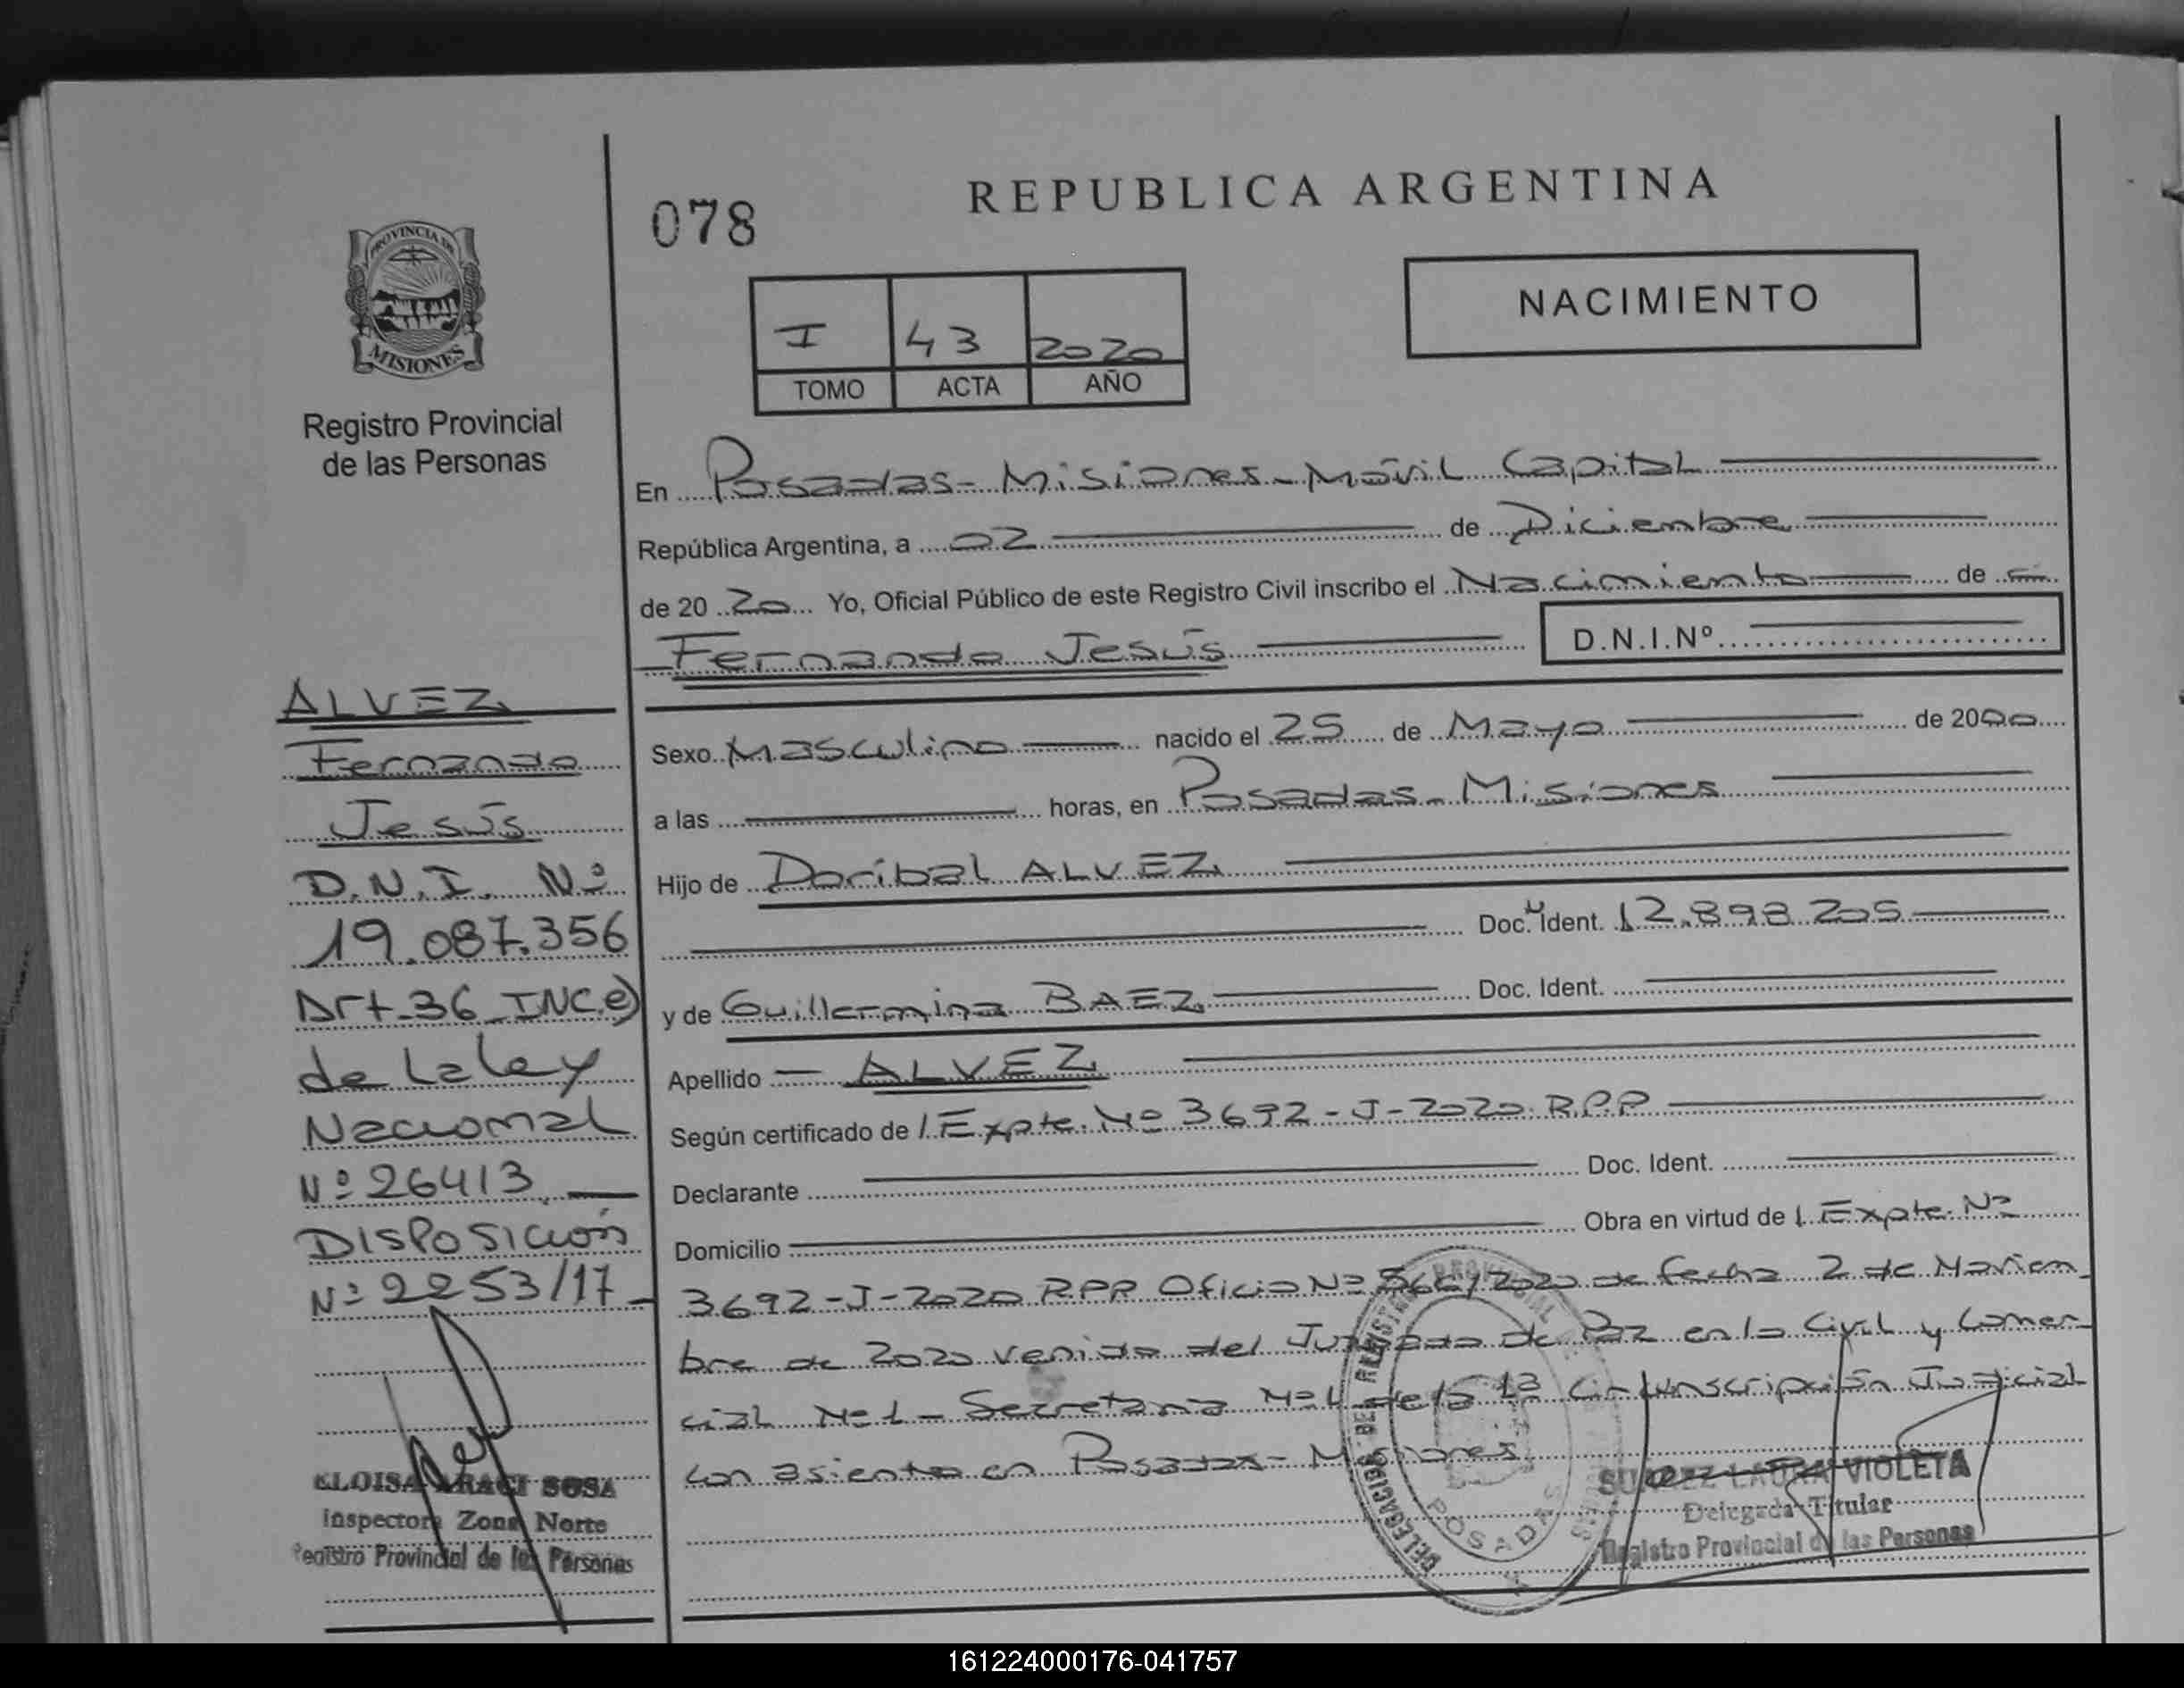 REPUBLICA ARGENTINA
078
NACIMIENTO
I 43 2020
TOMO ACTA AÑO
PROVINCIA DE
MISIONES
Registro Provincial
de las Personas
En Posadas - Misiones - Móvil Capital
República Argentina, a 02 de Diciembre
de 20 20 Yo, Oficial Público de este Registro Civil inscribo el Nacimiento de
Fernando Jesús D.N.I.Nº
Sexo Masculino nacido el 25 de Mayo de 2000
a las horas, en Posadas - Misiones
Hijo de Doribal ALVEZ
Doc. Ident. 12.898.205
y de Guillermina BAEZ Doc. Ident.
Apellido ALVEZ
Según certificado de Expte. Nº 3692-J-2020 R.P.P
Declarante Doc. Ident.
Domicilio Obra en virtud de Expte. Nº
3692-J-2020 RPP Oficio Nº 566/2020 de fecha 2 de Noviem
bre de 2020 venido del Juzgado de Paz en lo Civil y Comer
cial Nº 1 - Secretaria Nº 1 de la 1ª Circunscripción Judicial
con asiento en Posadas - Misiones
ALVEZ
Fernando
Jesús
D.N.I. Nº
19.087.356
Art. 36 INC e)
de La Ley
Nacional
Nº 26413
DISPOSICIÓN
Nº 2253/17
ELOISA ARACI SOSA
Inspectora Zona Norte
Registro Provincial de las Personas
POSADAS
SUAREZ LAURA VIOLETA
Delegada Titular
Registro Provincial de las Personas
161224000176-041757